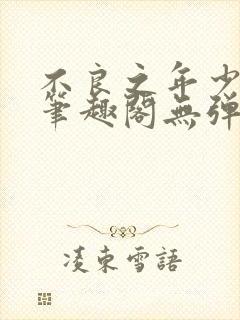 不良之年少
筆趣閣無彈
凌東雪語